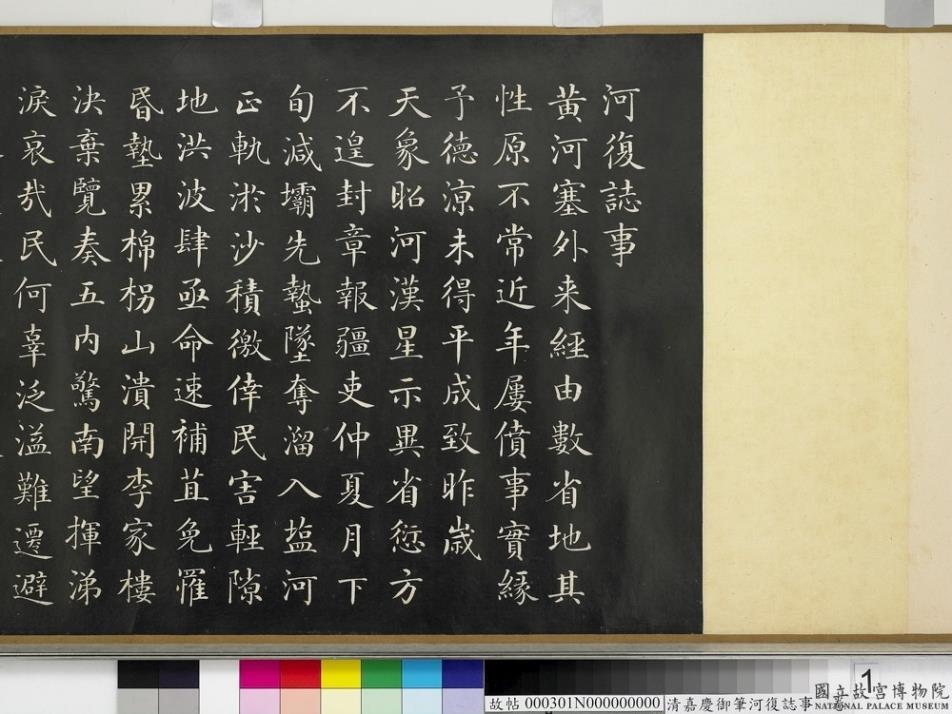 河復誌事
黃河塞外来經由數省地其
性原不常近年屢僨事實緣
予德涼未得平成致昨歲
天象昭河漢星示異省愆方
不遑封章報疆吏仲夏月下
旬減壩先蟄墜奪溜入塩河
正軌淤沙積徼倖民害輕隙
地洪波肆亟命速補苴免罹
昏墊累棉柺山潰開李家樓
決棄覽奏五內驚南望揮涕
淚哀哉民何辜泛溢難遷避
故帖 000301N000000000
清嘉慶御筆河復誌事
1
國立故宮博物院
NATIONAL PALACE MUSEUM